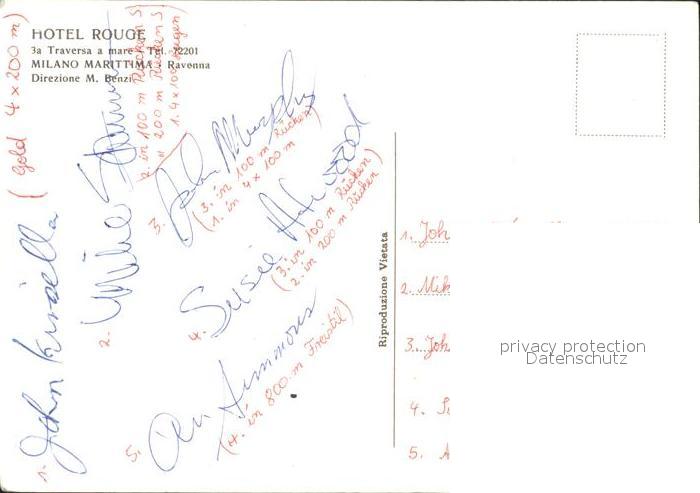 HOTEL ROUGE
3a Traversa a mare - Tel. 72201
MILANO MARITTIMA - Ravenna
Direzione M. Benzi
(Gold 4 x 200 m)
1. John Kinsella
2. Mike
2. in 100 m Rücken S
" 200 m Rücken S
1. 4 x 100 Lagen)
3. John Murphy
(3. in 100 m Rücken)
1. in 4 x 100 m
4. Susie Atwood
(3. in 100 m Rücken)
2. in 200 m Rücken)
5. Ann Simmons
(4. in 800 m Freistil)
Riproduzione Vietata
1. Joh
2. Mik
3. Joh
4. S
5. A
privacy protection
Datenschutz